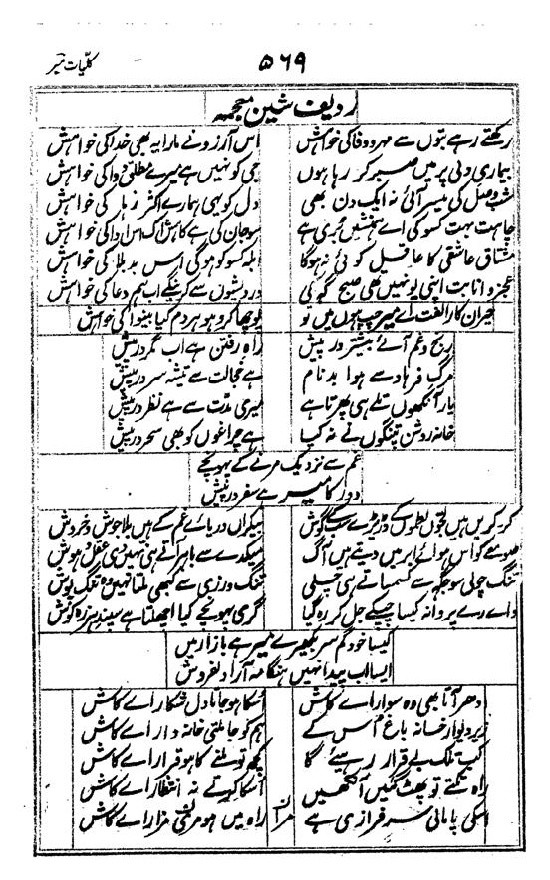 کلیات میر
۵۶۹
ردیف شین معجمہ
رکھتے رہے بتوں سے مہر و وفا کی خواہش
اس آرزو نے مارا یہ بھی خدا کی خواہش
بیماری دلی پر میں صبر کر رہا ہوں
جی کو نہیں ہے میرے مطلق دوا کی خواہش
شب وصل کی میسر آئی نہ ایک دن بھی
دل کو یہی ہمارے اکثر رہا کی خواہش
چاہت بہت کسو کی اے ہمنشیں بری ہے
سو جان کی ہے کاہش اک اس ادا کی خواہش
مشتاق عاشقی کا عاقل کوئی نہ ہوگا
ابلہ کسو کو ہوگی اس بد بلا کی خواہش
عجز و انابت اپنی یونہیں تھی صبح گہ کی
درویشوں سے کرینگے اب ہم دعا کی خواہش
حیران کار الفت اے میر چپ ہوں میں تو
پوچھا کرو ہو ہر دم کیا بینوا کی خواہش
رنج و غم آئے بیشتر درپیش
راہ رفتن ہے اب مگر درپیش
مرگ فرہاد سے ہوا بدنام
ہے خجالت سے تیشہ سر درپیش
یار آنکھوں تلے ہی پھرتا ہے
میری مدت سے ہے نظر درپیش
خانہ روشن پتنگوں نے نہ کیا
ہے چراغوں کو بھی سحر درپیش
غم سے نزدیک مرنے کے پہونچے
دور کا میر ہے سفر درپیش
بیکراں دریائے غم کے ہیں بلا جوش و خروش
میکدے سے باہر آتے ہی نہیں ذی عقل و ہوش
تنگ چولی سو جگہ سے کسمساتے ہی چلی
تنگ ورزی سے کبھی ملتا نہیں وہ تنگ پوش
واے رے پروانہ کیسا چپکے جل کر رہ گیا
گرمی پہونچے کیا اچھلتا ہے سپند ہرزہ کوش
کیسا خودگم سر بکھیرے میر ہے بازار میں
ایسا اب پیدا نہیں ہنگامہ آرا دلفروش
ادھر آتا بھی وہ سوار اے کاش
اسکا ہو جاتا دل شکار اے کاش
زیر دیوار خانہ باغ اس کے
ہم کو جا ملتی خانہ دار اے کاش
کب تلک بے قرار رہیے گا
کچھ تو ملنے کا ہو قرار اے کاش
راہ تکتے تو پھٹ گئیں آنکھیں
اسکا کرتے نہ انتظار اے کاش
اسکی پامالی سرفرازی ہے
راہ میں ہو مری مزار اے کاش